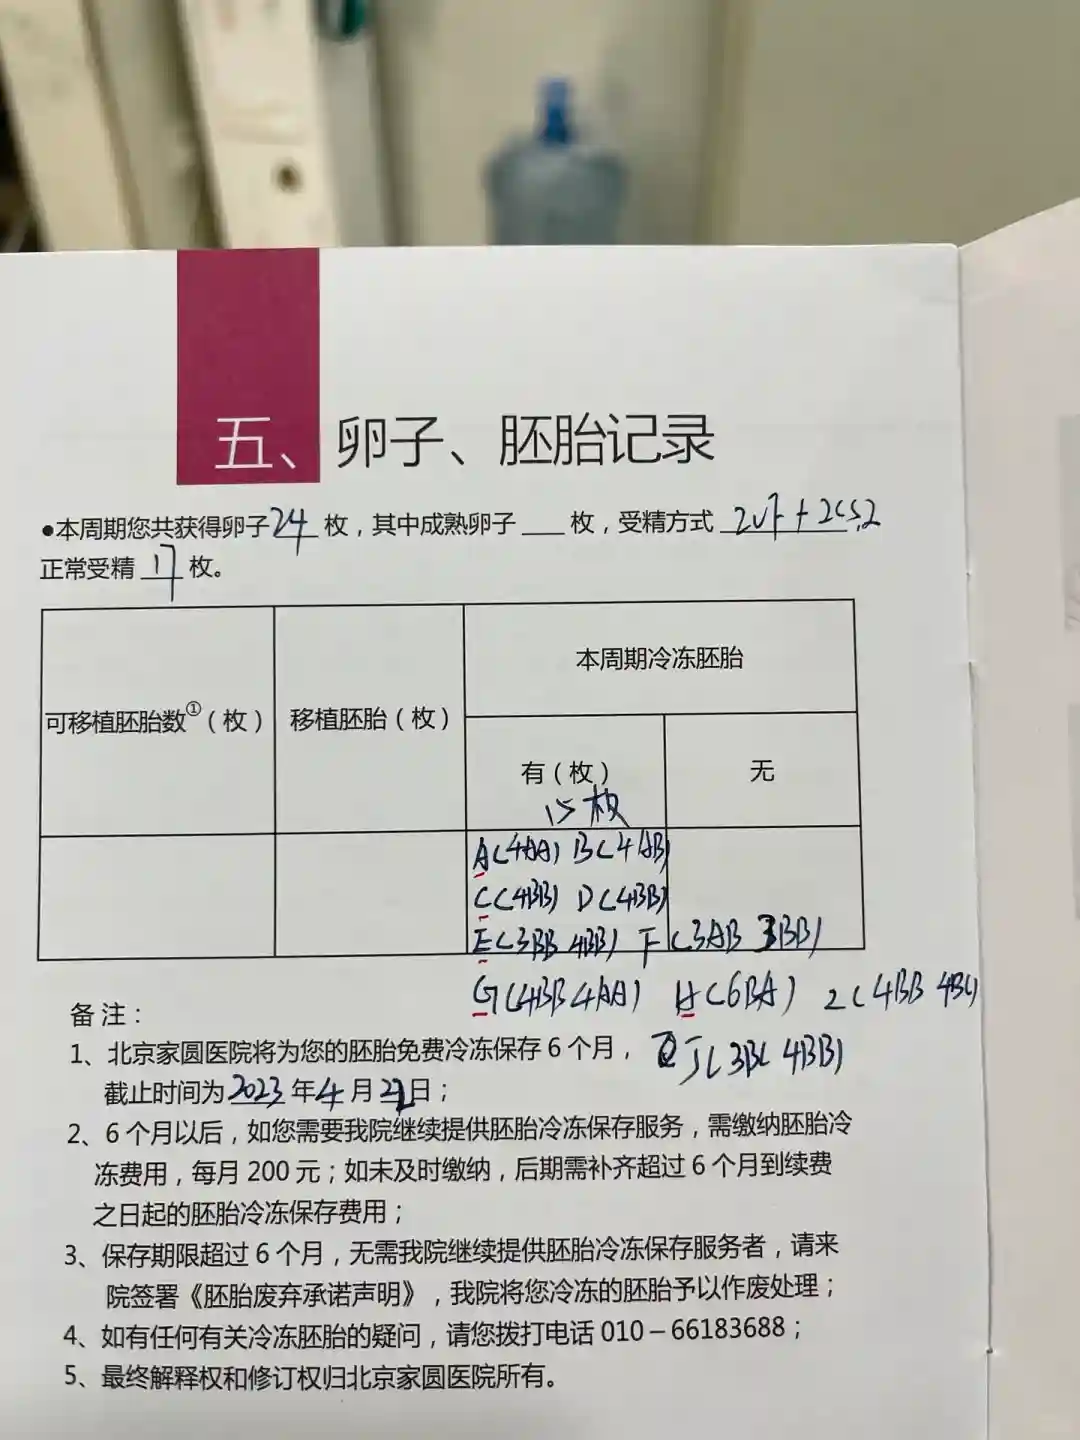 五、卵子、胚胎记录
●本周期您共获得卵子24枚，其中成熟卵子____枚，受精方式 2vF + 2cs2
正常受精 17 枚。
本周期冷冻胚胎
可移植胚胎数①（枚） 移植胚胎（枚）
有（枚） 无
15枚
A(4AA) B(4AB)
C(4BB) D(4BB)
E(3BB 4BB) F(3AB 3BB)
G(4BB 4AA) H(6BA) 2(4BB 4BC)
J(3BC 4BB)
备注：
1、北京家圆医院将为您的胚胎免费冷冻保存6个月，
截止时间为2023年4月22日；
2、6个月以后，如您需要我院继续提供胚胎冷冻保存服务，需缴纳胚胎冷
冻费用，每月200元；如未及时缴纳，后期需补齐超过6个月到续费
之日起的胚胎冷冻保存费用；
3、保存期限超过6个月，无需我院继续提供胚胎冷冻保存服务者，请来
院签署《胚胎废弃承诺声明》，我院将您冷冻的胚胎予以作废处理；
4、如有任何有关冷冻胚胎的疑问，请您拨打电话010－66183688；
5、最终解释权和修订权归北京家圆医院所有。